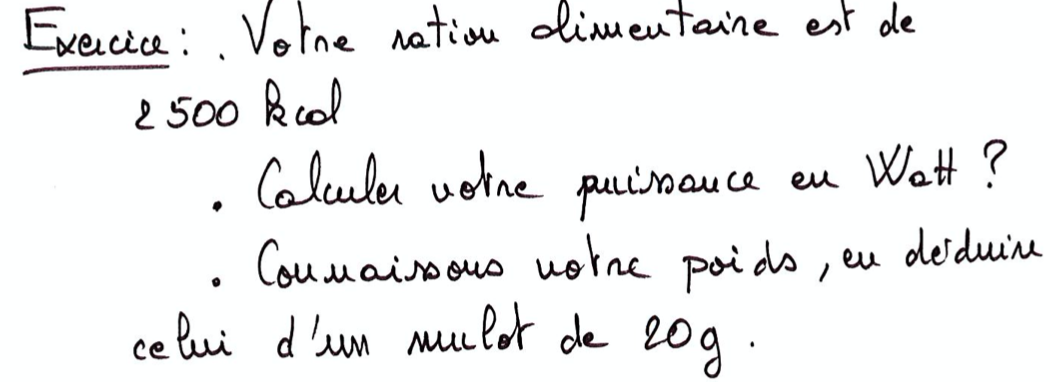 Exercice : . Votre ration alimentaire est de
2500 kcal
. Calculer votre puissance en Watt ?
. Connaissons votre poids, en déduire
celui d'un mulot de 20g.